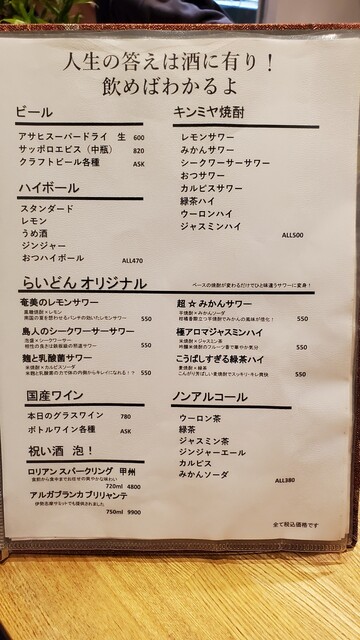 人生の答えは酒に有り！
飲めばわかるよ
ビール
アサヒスーパードライ 生 600
サッポロエビス（中瓶） 820
クラフトビール各種 ASK
ハイボール
スタンダード
レモン
うめ酒
ジンジャー
おつハイボール ALL470
キンミヤ焼酎
レモンサワー
みかんサワー
シークワーサーサワー
おつサワー
カルピスサワー
緑茶ハイ
ウーロンハイ
ジャスミンハイ
ALL500
らいどん オリジナル
ベースの焼酎が変わるだけでひと味違うサワーに変身！
奄美のレモンサワー
黒糖焼酎×レモン
南国の夏を想わせるパンチの効いたレモンサワー 550
島人のシークワーサーサワー
泡盛×シークワーサー
相性の良さは鉄板級の邪道サワー 550
麹と乳酸菌サワー
米焼酎×カルピスソーダ
米麹と乳酸菌の力で体の内側からキレイになれる！？ 550
超 ☆ みかんサワー
芋焼酎×みかんソーダ
柑橘香際立つ芋焼酎でみかんの風味が倍化！ 550
極アロマジャスミンハイ
米焼酎×ジャスミン茶
吟醸米焼酎のフルーツ香で華やか気分 550
こうばしすぎる緑茶ハイ
麦焼酎×緑茶
こんがり芳ばしい麦焼酎でスッキリ・キレ爽快 550
国産ワイン
本日のグラスワイン 780
ボトルワイン各種 ASK
祝い酒 泡！
ロリアン スパークリング 甲州
食前から食中までお任せの爽やかな味わい
720ml 4800
アルガブランカ ブリリャンテ
伊勢志摩サミットでも提供されました
750ml 9900
ノンアルコール
ウーロン茶
緑茶
ジャスミン茶
ジンジャーエール
カルピス
みかんソーダ
ALL380
全て税込価格です